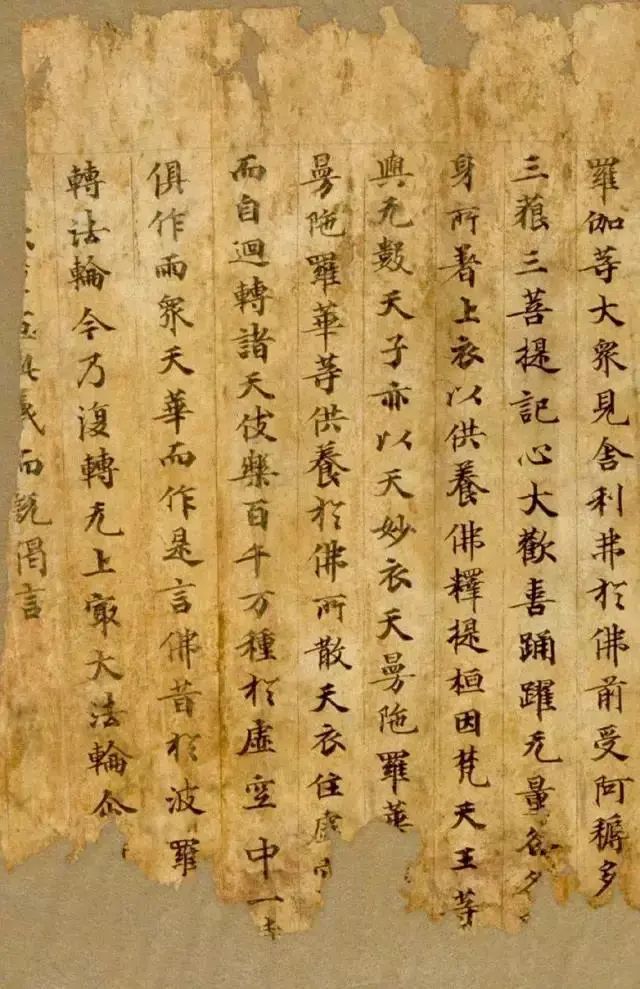 羅伽等大衆見舍利弗於佛前受阿耨多
三藐三菩提記心大歡喜踊躍无量各
身所著上衣以供養佛釋提桓因梵天王等
與无數天子亦以天妙衣天曼陁羅華
曼陁羅華等供養於佛所散天衣住虛
而自迴轉諸天伎樂百千万種於虛空中一
俱作雨衆天華而作是言佛昔於波羅
轉法輪今乃復轉无上最大法輪
義而說偈言